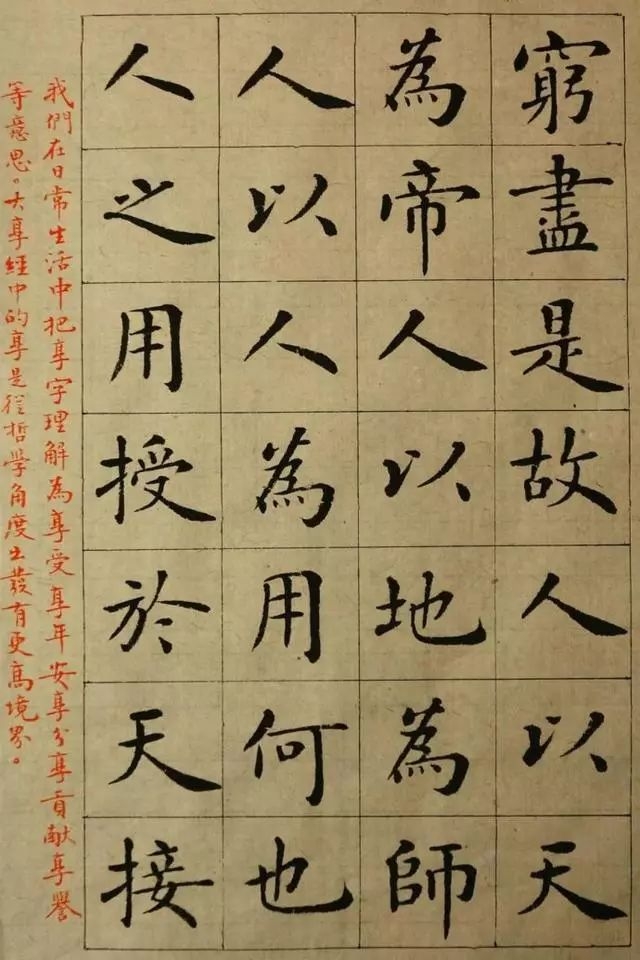 窮盡是故人以天
為帝人以地為師
人以人為用何也
人之用授於天接
我們在日常生活中把享字理解為享受享年安享分享貢献享譽
等意思。大享經中的享是從哲學角度出發有更高境界。